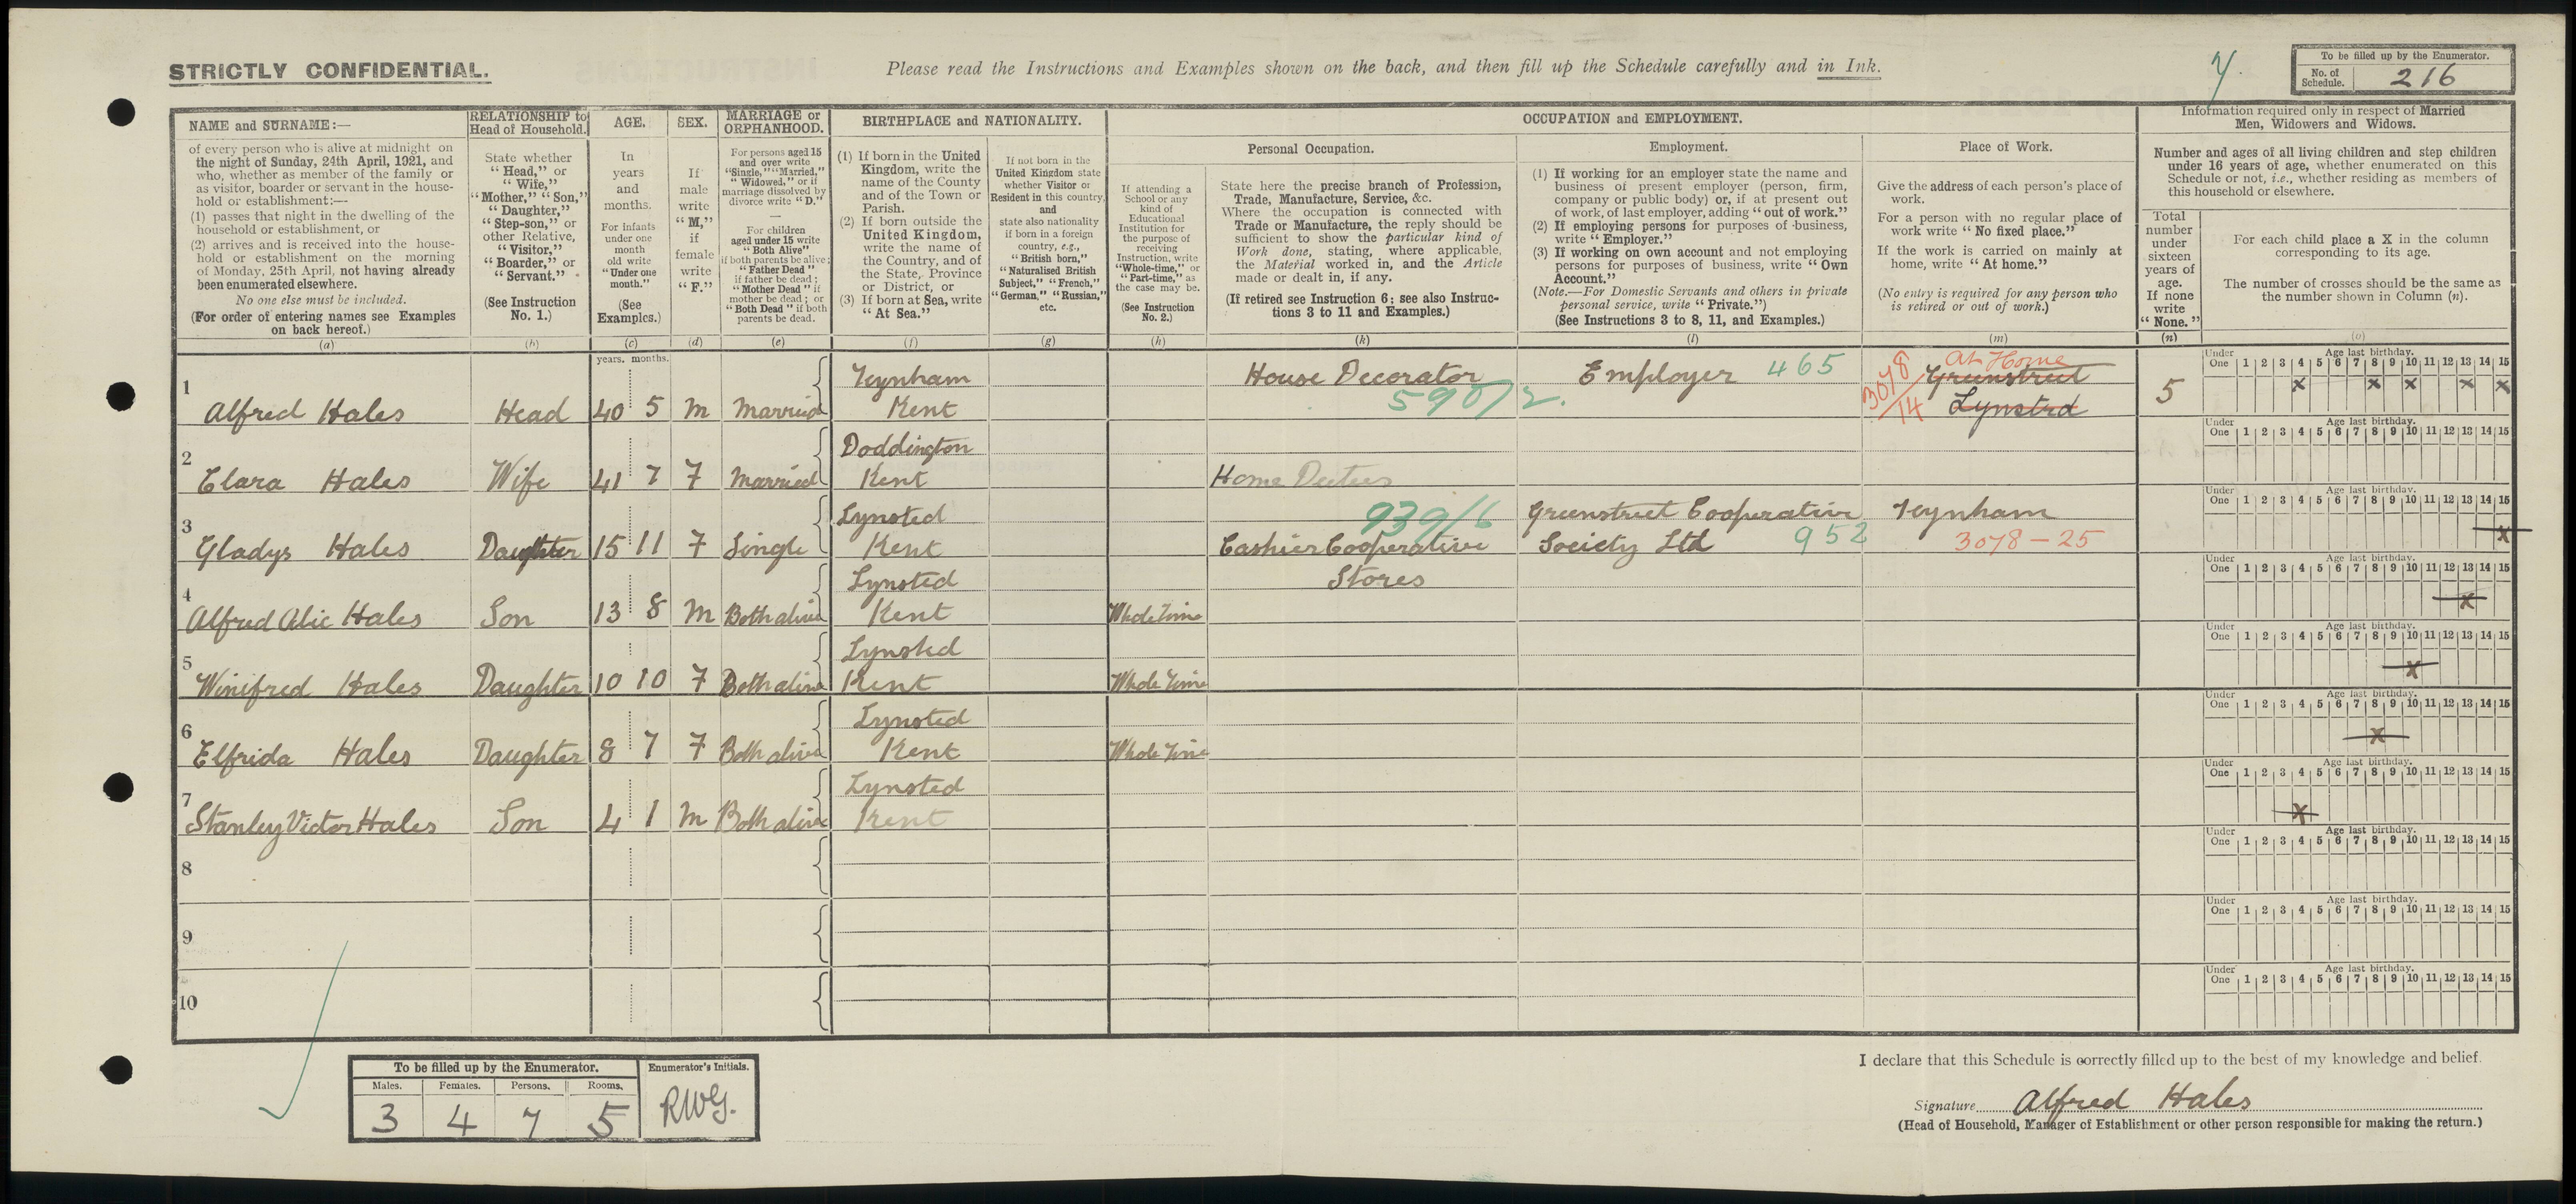 STRICTLY CONFIDENTIAL.
Please read the Instructions and Examples shown on the back, and then fill up the Schedule carefully and in Ink.
To be filled up by the Enumerator.
No. of Schedule. 216
NAME and SURNAME:—
of every person who is alive at midnight on
the night of Sunday, 24th April, 1921, and
who, whether as member of the family or
as visitor, boarder or servant in the house-
hold or establishment:—
(1) passes that night in the dwelling of the
household or establishment, or
(2) arrives and is received into the house-
hold or establishment on the morning
of Monday, 25th April, not having already
been enumerated elsewhere.
No one else must be included.
(For order of entering names see Examples
on back hereof.)
(a)
RELATIONSHIP to
Head of Household.
State whether
"Head," or
"Wife,"
"Mother," "Son,"
"Daughter,"
"Step-son," or
other Relative,
"Visitor,"
"Boarder," or
"Servant."
(See Instruction
No. 1.)
(b)
AGE.
In
years
and
months.
For infants
under one
month
old write
"Under one
month."
(See
Examples.)
(c)
SEX.
If
male
write
"M,"
if
female
write
"F."
(d)
MARRIAGE or
ORPHANHOOD.
For persons aged 15
and over write
"Single," "Married,"
"Widowed," or if
marriage dissolved by
divorce write "D."
—
For children
aged under 15 write
"Both Alive"
if both parents be alive;
"Father Dead"
if father be dead;
"Mother Dead" if
mother be dead; or
"Both Dead" if both
parents be dead.
(e)
BIRTHPLACE and NATIONALITY.
(1) If born in the United
Kingdom, write the
name of the County
and of the Town or
Parish.
(2) If born outside the
United Kingdom,
write the name of
the Country, and of
the State, Province
or District, or
(3) If born at Sea, write
"At Sea."
(f)
If not born in the
United Kingdom state
whether Visitor or
Resident in this country,
and
state also nationality
if born in a foreign
country, e.g.,
"British born,"
"Naturalised British
Subject," "French,"
"German," "Russian,"
etc.
(g)
OCCUPATION and EMPLOYMENT.
If attending a
School or any
kind of
Educational
Institution for
the purpose of
receiving
Instruction, write
"Whole-time," or
"Part-time," as
the case may be.
(See Instruction
No. 2.)
(h)
Personal Occupation.
State here the precise branch of Profession,
Trade, Manufacture, Service, &c.
Where the occupation is connected with
Trade or Manufacture, the reply should be
sufficient to show the particular kind of
Work done, stating, where applicable,
the Material worked in, and the Article
made or dealt in, if any.
(If retired see Instruction 6: see also Instruc-
tions 3 to 11 and Examples.)
(k)
Employment.
(1) If working for an employer state the name and
business of present employer (person, firm,
company or public body) or, if at present out
of work, of last employer, adding "out of work."
(2) If employing persons for purposes of business,
write "Employer."
(3) If working on own account and not employing
persons for purposes of business, write "Own
Account."
(Note.—For Domestic Servants and others in private
personal service, write "Private.")
(See Instructions 3 to 8, 11, and Examples.)
(l)
Place of Work.
Give the address of each person's place of
work.
For a person with no regular place of
work write "No fixed place."
If the work is carried on mainly at
home, write "At home."
(No entry is required for any person who
is retired or out of work.)
(m)
Information required only in respect of Married
Men, Widowers and Widows.
Number and ages of all living children and step children
under 16 years of age, whether enumerated on this
Schedule or not, i.e., whether residing as members of
this household or elsewhere.
Total
number
under
sixteen
years of
age.
If none
write
"None."
(n)
For each child place a X in the column
corresponding to its age.
The number of crosses should be the same as
the number shown in Column (n).
(o)
years. months.
1 Alfred Hales Head 40 5 M Married Teynham Kent House Decorator 590/2. Employer 465 3078/14 At Home Greenstreet Lynsted 5
Under One 1 2 3 4 5 6 7 8 9 10 11 12 13 14 15 Age last birthday.
X X X X X
2 Clara Hales Wife 41 7 F Married Doddington Kent Home Duties
Under One 1 2 3 4 5 6 7 8 9 10 11 12 13 14 15 Age last birthday.
3 Gladys Hales Daughter 15 11 F Single Lynsted Kent 939/6 Cashier Cooperative Stores Greenstreet Cooperative Society Ltd 952 Teynham 3078-25
Under One 1 2 3 4 5 6 7 8 9 10 11 12 13 14 15 Age last birthday.
X
4 Alfred Alic Hales Son 13 8 M Both alive Lynsted Kent Whole Time
Under One 1 2 3 4 5 6 7 8 9 10 11 12 13 14 15 Age last birthday.
X
5 Winifred Hales Daughter 10 10 F Both alive Lynsted Kent Whole Time
Under One 1 2 3 4 5 6 7 8 9 10 11 12 13 14 15 Age last birthday.
X
6 Elfrida Hales Daughter 8 7 F Both alive Lynsted Kent Whole Time
Under One 1 2 3 4 5 6 7 8 9 10 11 12 13 14 15 Age last birthday.
X
7 Stanley Victor Hales Son 4 1 M Both alive Lynsted Kent
Under One 1 2 3 4 5 6 7 8 9 10 11 12 13 14 15 Age last birthday.
X
8
Under One 1 2 3 4 5 6 7 8 9 10 11 12 13 14 15 Age last birthday.
9
Under One 1 2 3 4 5 6 7 8 9 10 11 12 13 14 15 Age last birthday.
10
Under One 1 2 3 4 5 6 7 8 9 10 11 12 13 14 15 Age last birthday.
To be filled up by the Enumerator.
Males. Females. Persons. Rooms.
3 4 7 5
Enumerator's Initials.
RWG.
I declare that this Schedule is correctly filled up to the best of my knowledge and belief.
Signature Alfred Hales
(Head of Household, Manager of Establishment or other person responsible for making the return.)